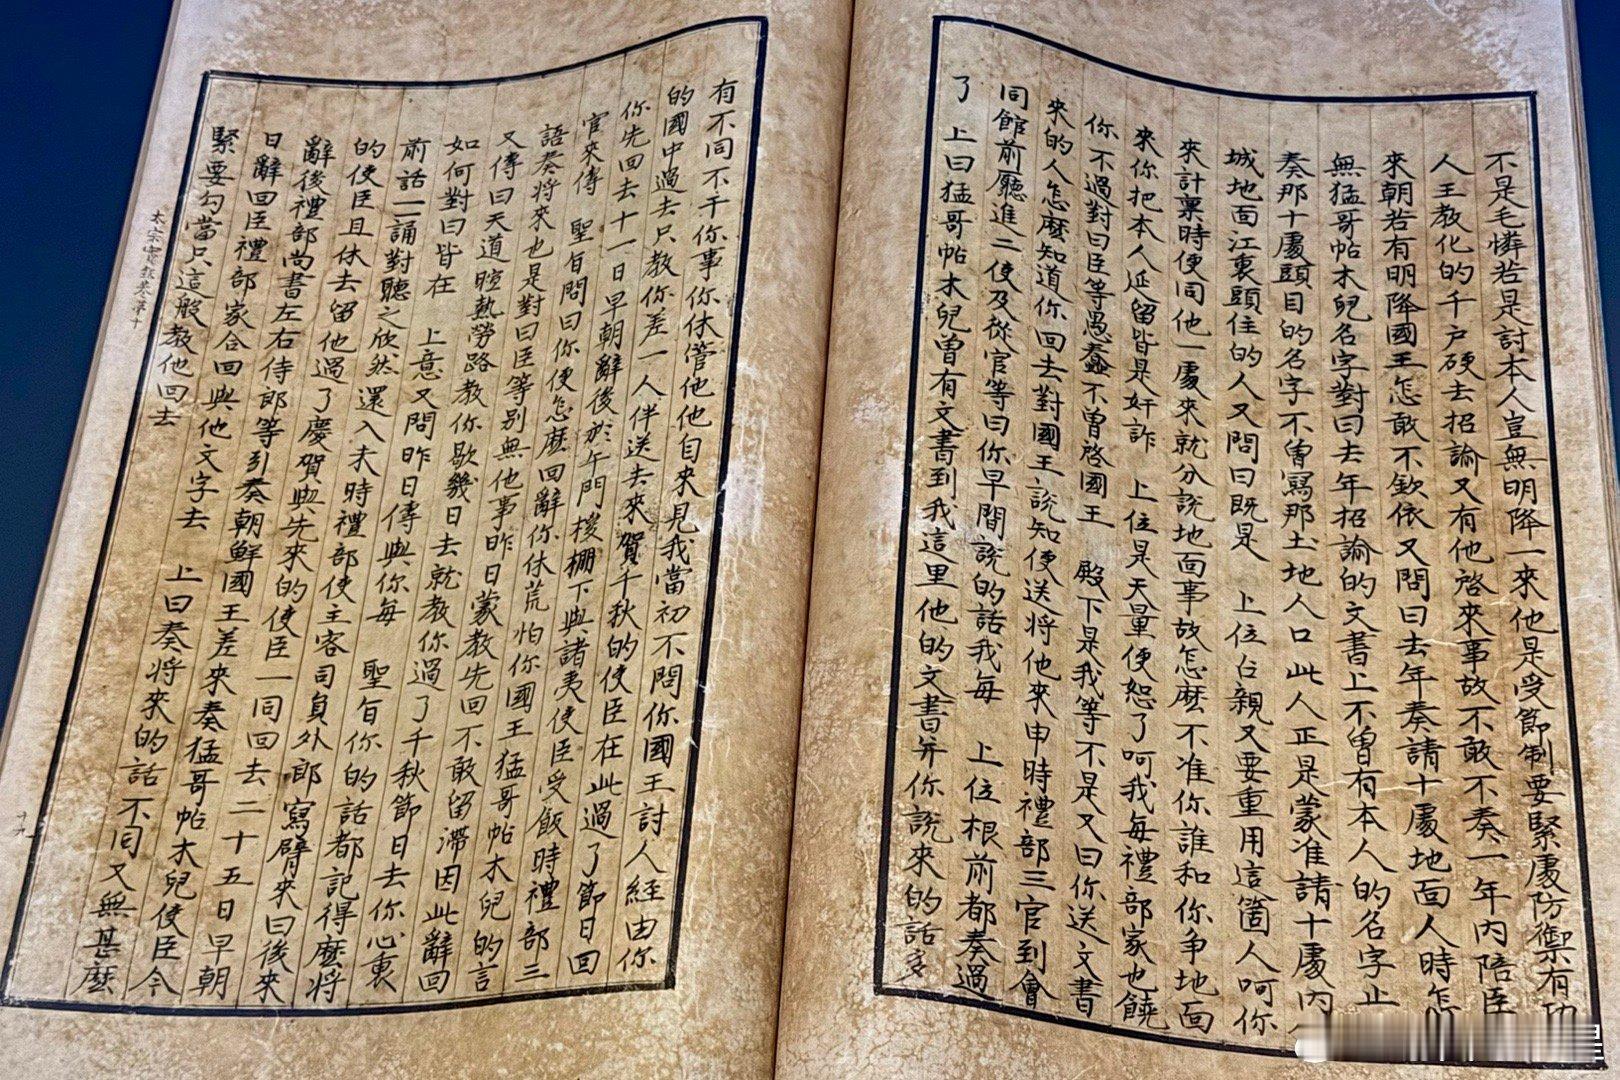 不是毛憐若是討本人豈無明降一來他是受節制要緊處防禦有功
人王教化的千户硬去招諭又有他啓來事故不敢不奏一年內陪臣
來朝若有明降國王怎敢不欽依又問曰去年奏請十處地面人時怎
無猛哥帖木兒名字對曰去年招諭的文書上不曾有本人的名字止
奏那十處頭目的名字不曾寫那土地人口此人正是蒙准請十處內
城地面江裏頭住的人又問曰既是 上位台親又要重用這箇人呵你
來計稟時便同他一處來就分說地面事故怎麽不准你誰和你争地面
來你把本人延留皆是奸詐 上位是天量便恕了呵我每禮部家也饒
你不過對曰臣等愚蠢不曾啓國王 殿下是我等不是又曰你送文書
來的人怎麽知道你回去對國王說知便送將他來申時禮部三官到會
同館前廳進二使及從官等曰你早間說的話我每 上位根前都奏過
了 上曰猛哥帖木兒曾有文書到我這里他的文書幷你說來的話多
有不同不干你事你休管他他自來見我當初不問你國王討人經由你
的國中過去只教你差一人伴送去來賀千秋的使臣在此過了節日回
你先回去十一日早朝辭後於午門樓棚下與諸夷使臣受飯時禮部三
官來傳 聖旨問曰你使怎麽回辭你休荒怕你國王猛哥帖木兒的言
語奏將來也是對曰臣等別無他事昨日蒙教先回不敢留滯因此辭回
又傳曰天道暄熱勞路教你歇幾日去就教你過了千秋節日去你心裏
如何對曰皆在 上意又問昨日傳與你每 聖旨你的話都記得麽將
前話一一誦對聽之欣然還入未時禮部使主客司員外郎寫臂來曰後來
的使臣且休去留他過了慶賀與先來的使臣一同回去二十五日早朝
辭後禮部尚書左右侍郎等引奏朝鮮國王差來奏猛哥帖木兒使臣今
日辭回臣禮部家合回與他文字去 上曰奏將來的話不同又無甚麽
緊要勾當只這般教他回去
太宗實錄卷第十
十九